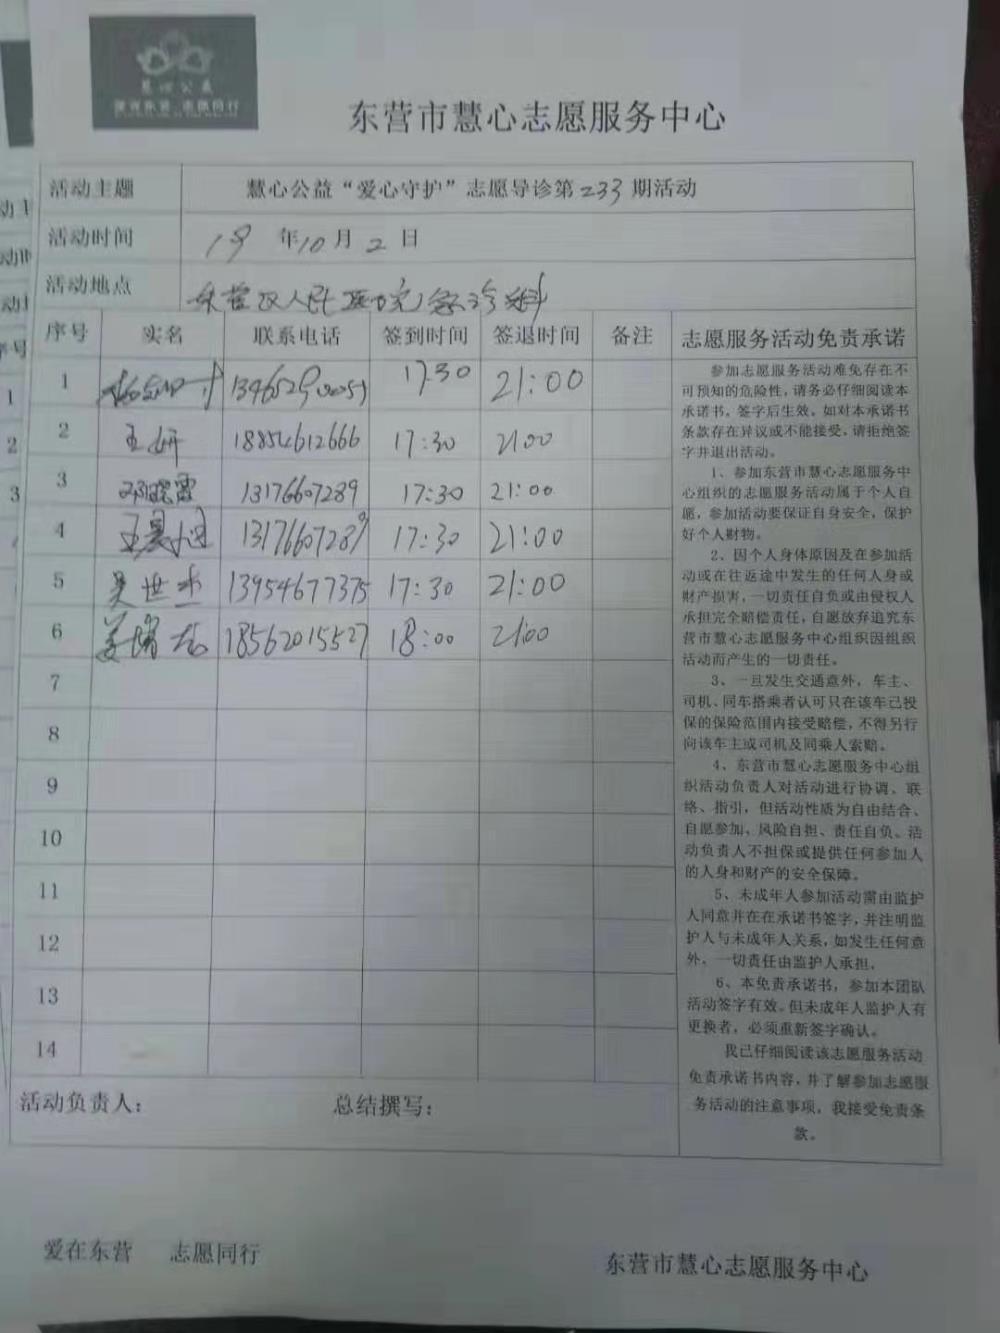 慧心公益
爱在东营 志愿同行
东营市慧心志愿服务中心
活动主题 慧心公益“爱心守护”志愿导诊第233期活动
活动时间 19 年10月2日
活动地点 东营区人民医院急诊科
序号 实名 联系电话 签到时间 签退时间 备注 志愿服务活动免责承诺
1 17:30 21:00
2 王妍 18854612666 17:30 21:00
3 邓晓霞 13176607289 17:30 21:00
4 13176607289 17:30 21:00
5 吴世杰 13954677375 17:30 21:00
6 姜瑞志 18562015527 18:00 21:00
7
8
9
10
11
12
13
14
参加志愿服务活动难免存在不
可预知的危险性，请务必仔细阅读本
承诺书，签字后生效。如对本承诺书
条款存在异议或不能接受，请拒绝签
字并退出活动。
1、参加东营市慧心志愿服务中
心组织的志愿服务活动属于个人自
愿，参加活动要保证自身安全，保护
好个人财物。
2、因个人身体原因及在参加活
动或在往返途中发生的任何人身或
财产损害，一切责任自负或由侵权人
承担完全赔偿责任，自愿放弃追究东
营市慧心志愿服务中心组织因组织
活动而产生的一切责任。
3、一旦发生交通意外，车主、
司机、同车搭乘者认可只在该车已投
保的保险范围内接受赔偿，不得另行
向该车主或司机及同乘人索赔。
4、东营市慧心志愿服务中心组
织活动负责人对活动进行协调、联
络、指引，但活动性质为自由结合、
自愿参加，风险自担、责任自负。活
动负责人不担保或提供任何参加人
的人身和财产的安全保障。
5、未成年人参加活动需由监护
人同意并在在承诺书签字，并注明监
护人与未成年人关系，如发生任何意
外，一切责任由监护人承担。
6、本免责承诺书，参加本团队
活动签字有效。但未成年人监护人有
更换者，必须重新签字确认。
我已仔细阅读该志愿服务活动
免责承诺书内容，并了解参加志愿服
务活动的注意事项，我接受免责条
款。
活动负责人： 总结撰写：
爱在东营 志愿同行
东营市慧心志愿服务中心